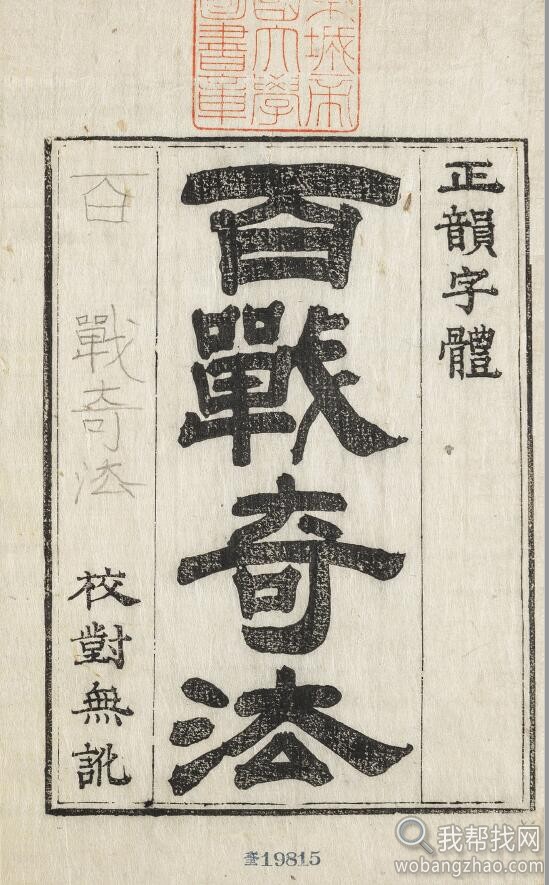 京城帝
國大學
圖書章
正韻字體
百戰奇法
百戰奇法
校對無訛
奎19815
我帮找网
wobangzhao.com